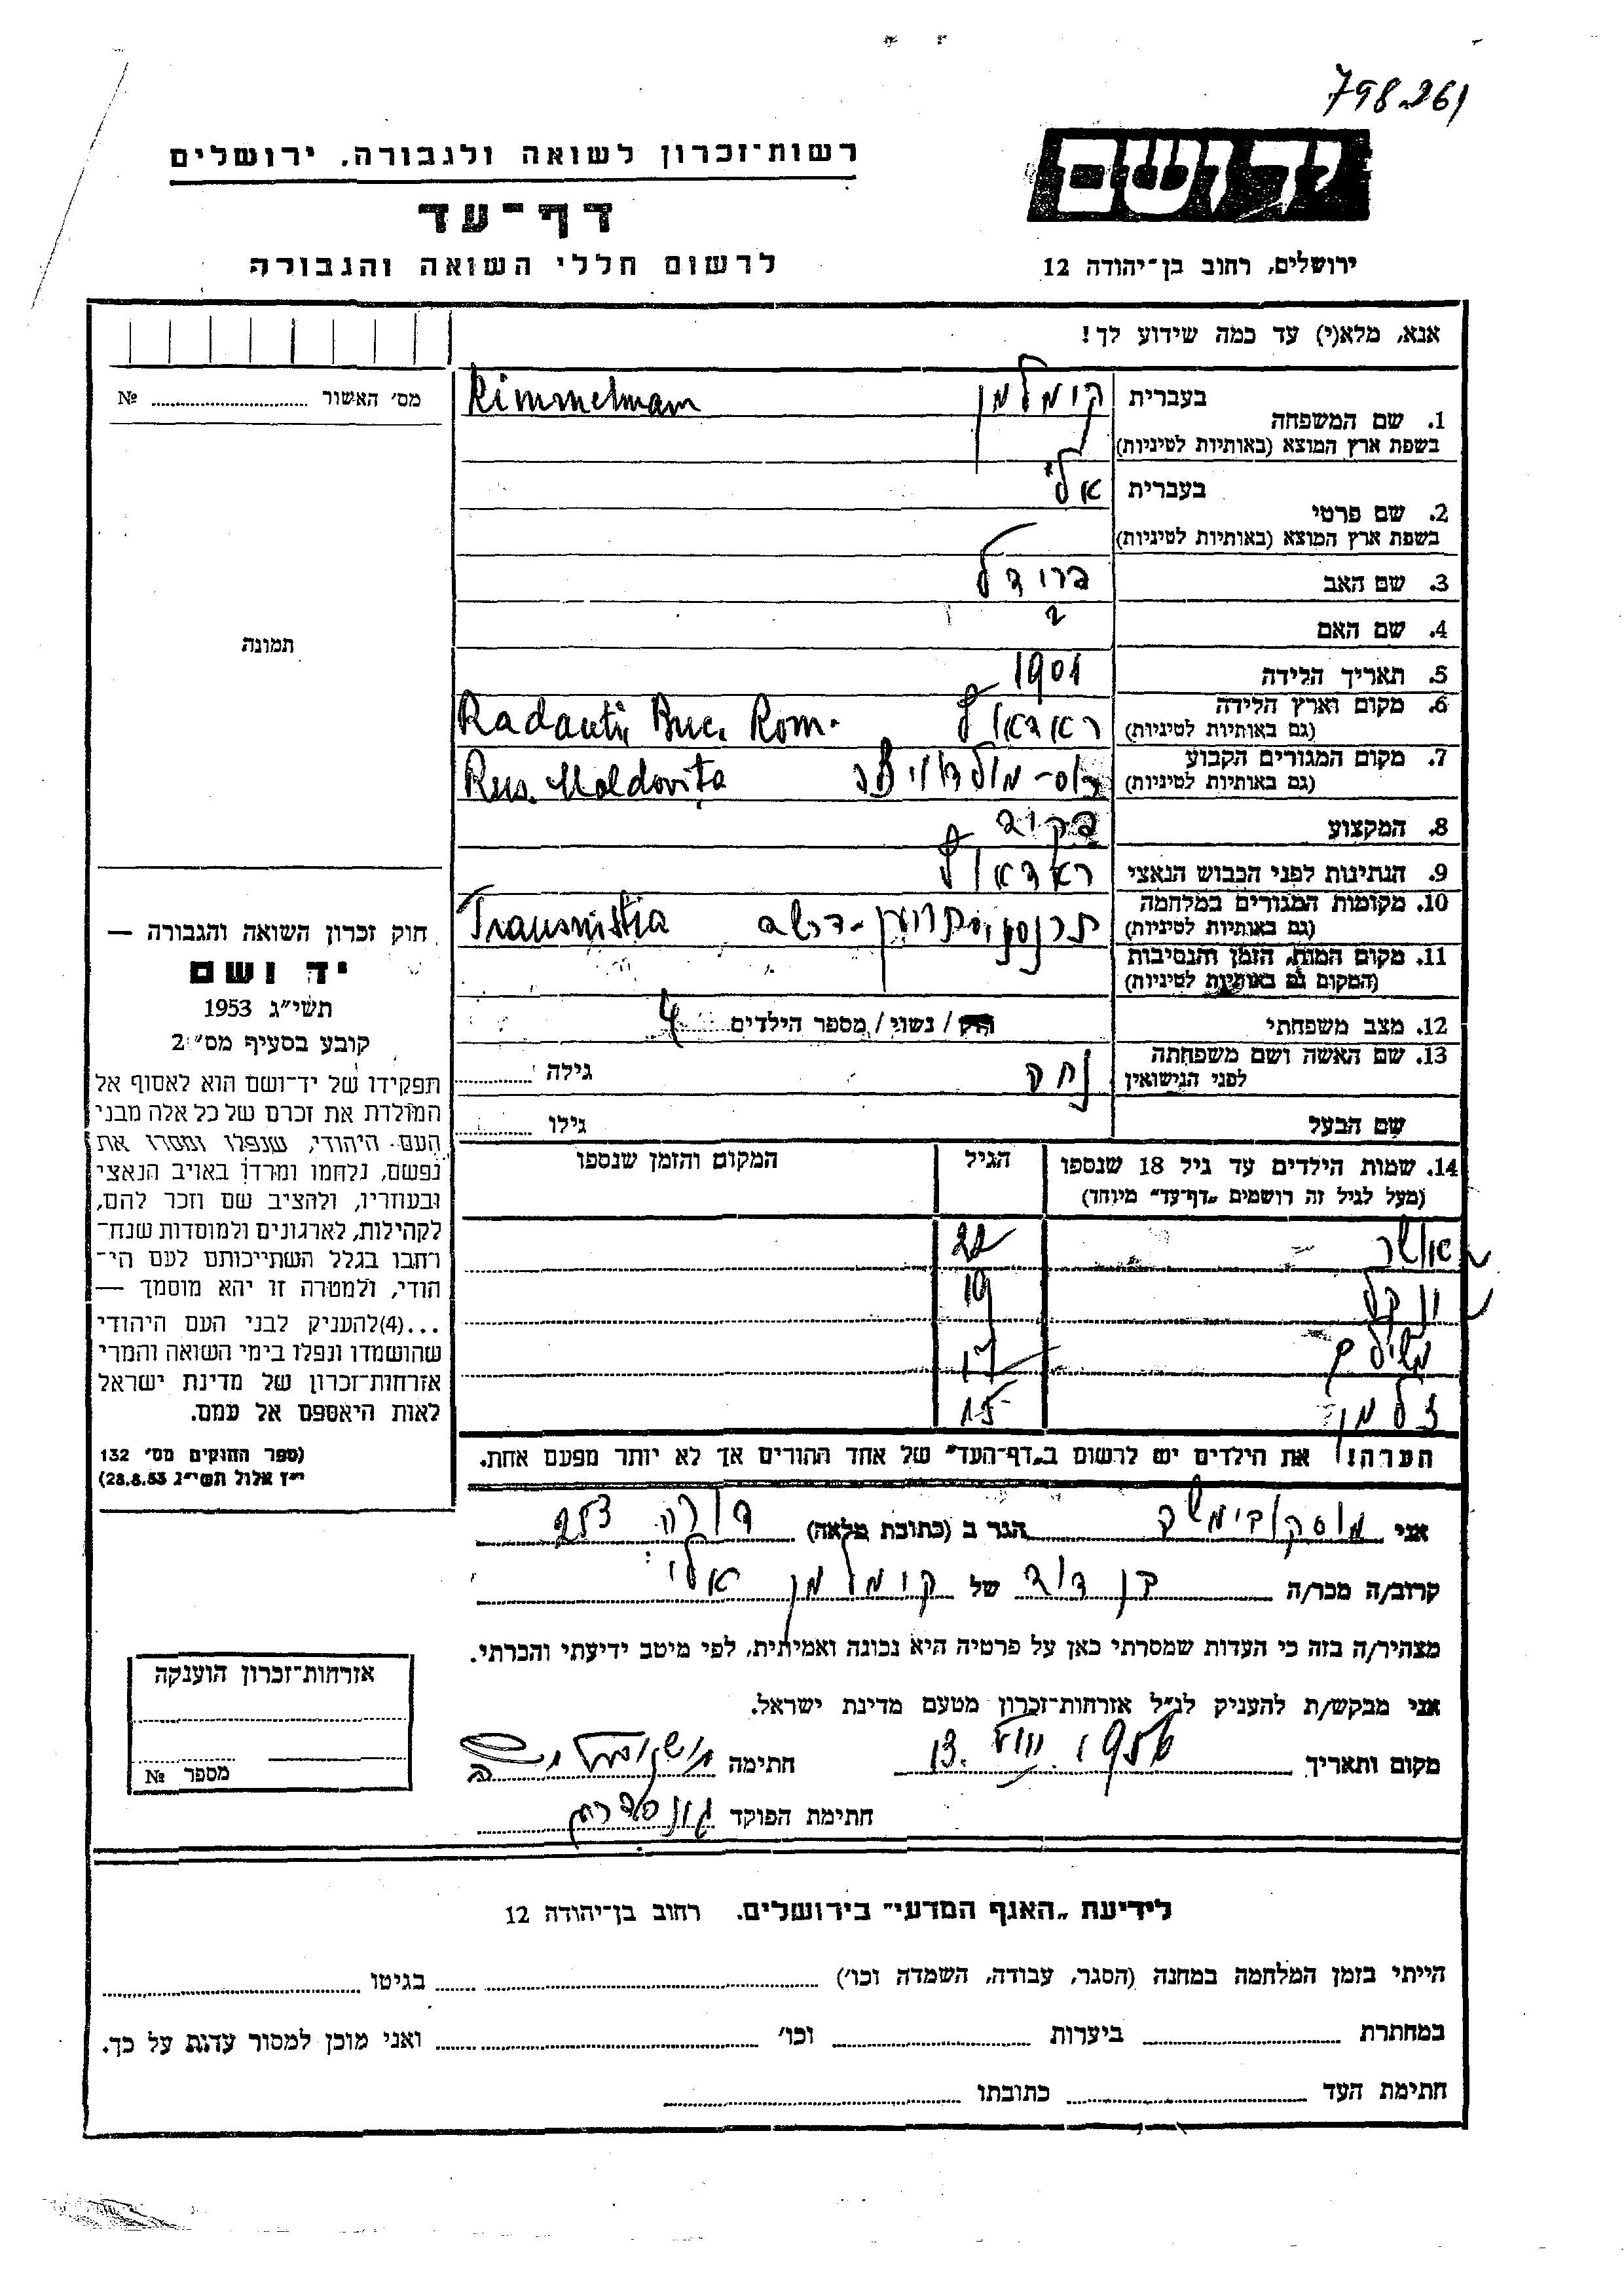 798261
יד ושם
רשות־זכרון לשואה ולגבורה, ירושלים
דף־עד
לרשום חללי השואה והגבורה
ירושלים, רחוב בן־יהודה 12
אנא, מלא(י) עד כמה שידוע לך!
מס׳ האשור № 
1. שם המשפחה בעברית קימלמן Kimmelman
בשפת ארץ המוצא (באותיות לטיניות)
2. שם פרטי בעברית אלי
בשפת ארץ המוצא (באותיות לטיניות)
3. שם האב
4. שם האם
5. תאריך הלידה 1901
6. מקום וארץ הלידה
(גם באותיות לטיניות) Radauti Buc. Rom.
7. מקום המגורים הקבוע
(גם באותיות לטיניות) Rus. Moldovita
8. המקצוע
9. הנתינות לפני הכבוש הנאצי
10. מקומות המגורים במלחמה
(גם באותיות לטיניות) Transnistia
11. מקום המות, הזמן והנסיבות
(המקום גם באותיות לטיניות)
12. מצב משפחתי רוק / נשוי / מספר הילדים 4
13. שם האשה ושם משפחתה
לפני הנישואין גילה
שם הבעל גילו
14. שמות הילדים עד גיל 18 שנספו
(מעל לגיל זה רושמים „דף־עד״ מיוחד)
הגיל
המקום והזמן שנספו
אושר 22
ינקל 19
משולם 17
זלמן 15
הערה! את הילדים יש לרשום ב„דף־העד״ של אחד ההורים אך לא יותר מפעם אחת.
תמונה
חוק זכרון השואה והגבורה —
יד ושם
תשי״ג 1953
קובע בסעיף מס׳ 2
תפקידו של יד־ושם הוא לאסוף אל
המולדת את זכרם של כל אלה מבני
העם היהודי, שנפלו ומסרו את
נפשם, נלחמו ומרדו באויב הנאצי
ובעוזריו, ולהציב שם וזכר להם,
לקהילות, לארגונים ולמוסדות שנח־
רחבו בגלל השתייכותם לעם הי־
הודי, ולמטרה זו יהא מוסמך —
...(4)להעניק לבני העם היהודי
שהושמדו ונפלו בימי השואה והמרי
אזרחות־זכרון של מדינת ישראל
לאות היאספם אל עמם.
(ספר החוקים מס׳ 132
י״ז אלול תשי״ג 28.8.53)
אני הגר ב (כתובת מלאה)
קרוב/ה מכר/ה בן דוד של קימלמן אלי
מצהיר/ה בזה כי העדות שמסרתי כאן על פרטיה היא נכונה ואמיתית, לפי מיטב ידיעתי והכרתי.
אני מבקש/ת להעניק לנ״ל אזרחות־זכרון מטעם מדינת ישראל.
מקום ותאריך 13. VIII. 1956 חתימה
חתימת הפוקד
אזרחות־זכרון הוענקה
מספר №
לידיעת „האגף המדעי״ בירושלים. רחוב בן־יהודה 12
הייתי בזמן המלחמה במחנה (הסגר, עבודה, השמדה וכו׳) בגיטו
במחתרת ביערות וכו׳ ואני מוכן למסור עדות על כך.
חתימת העד כתובתו